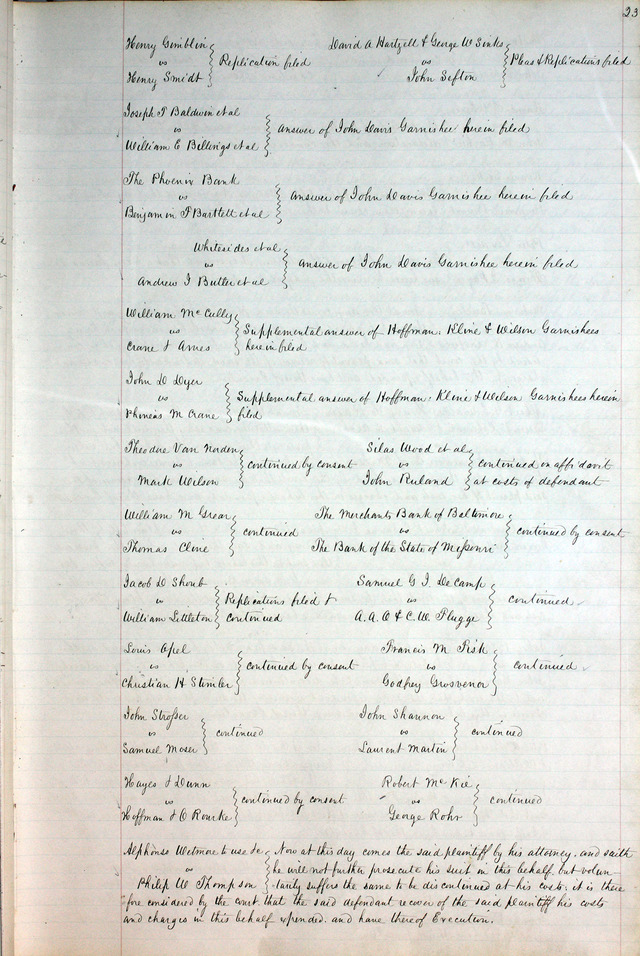 23
Henry Gemblin
vs
Henry Smidt
Replication filed
David A Hartzell & George W Sinks
vs
John Sefton
Pleas & Replications filed
Joseph P Baldwin et al
vs
William E Billings et al
answer of John Davis Garnishee herein filed
The Phoenix Bank
vs
Benjamin P Bartlett et al
answer of John Davis Garnishee herein filed
Whitesides et al
vs
Andrew J Butler et al
answer of John Davis Garnishee herein filed
William McCully
vs
Crane & Ames
Supplemental answer of Hoffman, Kline & Wilson Garnishees
herein filed
John D Dyer
vs
Phineas M Crane
Supplemental answer of Hoffman, Kline & Wilson Garnishees herein
filed
Theodore Van Norden
vs
Mark Wilson
continued by consent
Silas Wood et al
vs
John Ruland
continued on affidavit
at costs of defendant
William M Grear
vs
Thomas Cline
continued
The Merchants Bank of Baltimore
vs
The Bank of the State of Missouri
continued by consent
Jacob D Shoub
vs
William Littleton
Replications filed &
continued
Samuel G J DeCamp
vs
A. A. O & C. W. Plugge
continued
Louis Apel
vs
Christian H Stimler
continued by consent
Francis M Fisk
vs
Godfrey Grosvenor
continued
John Strosser
vs
Samuel Moser
continued
John Shannon
vs
Laurent Martin
continued
Hayes & Dunn
vs
Hoffman & O Rourke
continued by consent
Robert McKee
vs
George Rohr
continued
Alphonse Wetmore to use &c
vs
Philip W Thompson
Now at this day comes the said plaintiff by his attorney, and saith
he will not further prosecute his suit in this behalf, but volun-
tarily suffers the same to be discontinued at his costs: it is there
fore considered by the court that the said defendant recover of the said plaintiff his costs
and charges in this behalf expended. and have thereof Execution.